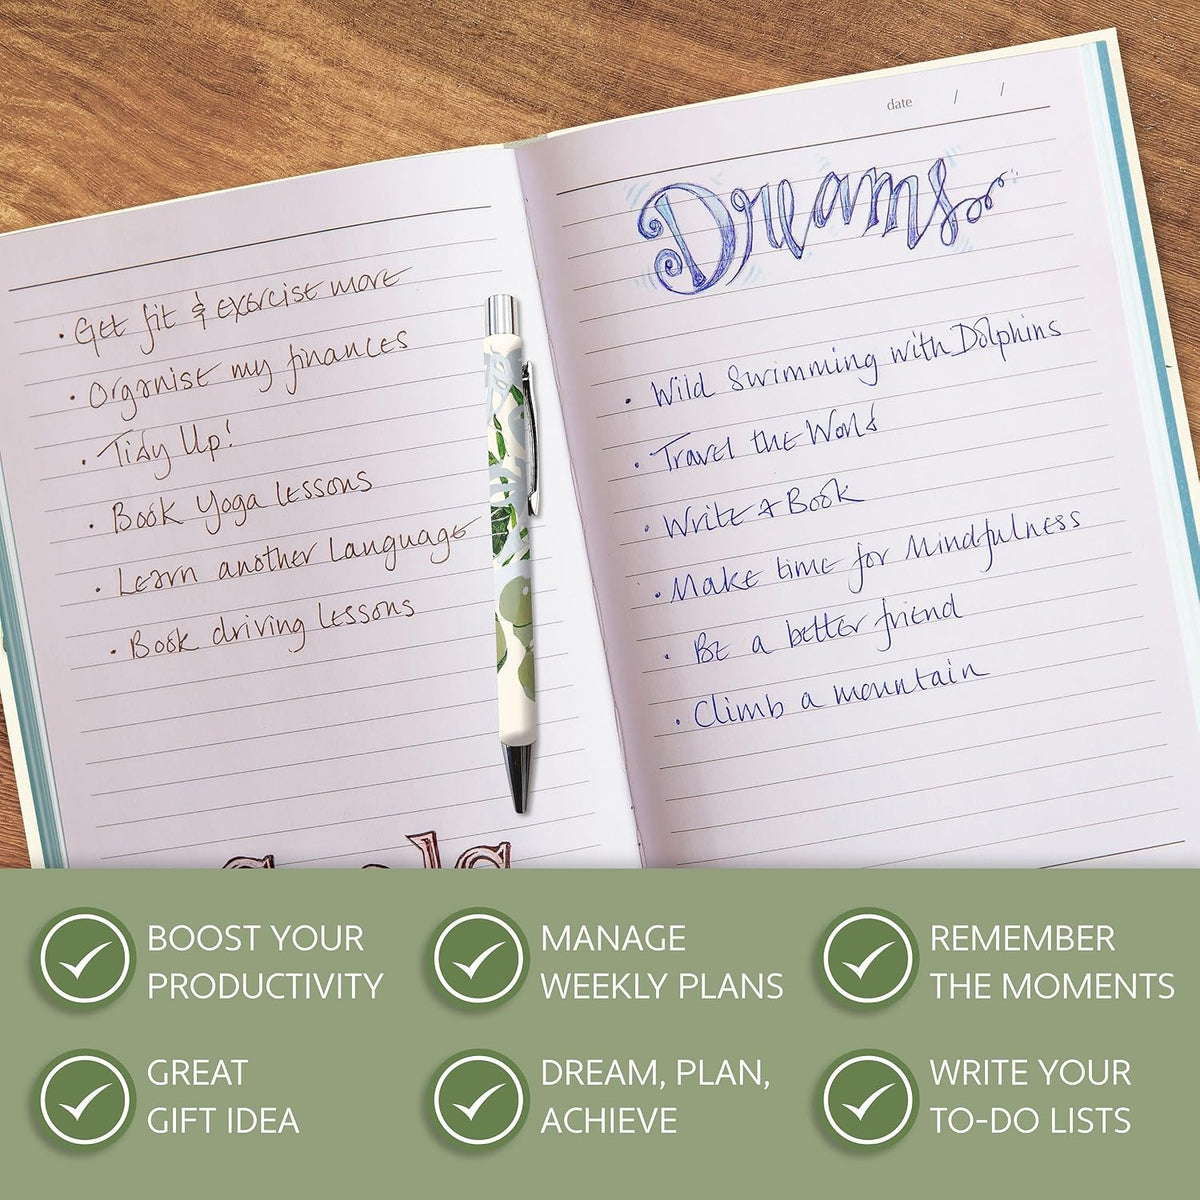 • Get fit & exercise more
• Organise my finances
• Tidy Up!
• Book Yoga lessons
• Learn another Language
• Book driving lessons
date / /
Dreams
• Wild Swimming with Dolphins
• Travel the World
• Write a Book
• Make time for Mindfulness
• Be a better friend
• Climb a mountain
BOOST YOUR
PRODUCTIVITY
MANAGE
WEEKLY PLANS
REMEMBER
THE MOMENTS
GREAT
GIFT IDEA
DREAM, PLAN,
ACHIEVE
WRITE YOUR
TO-DO LISTS